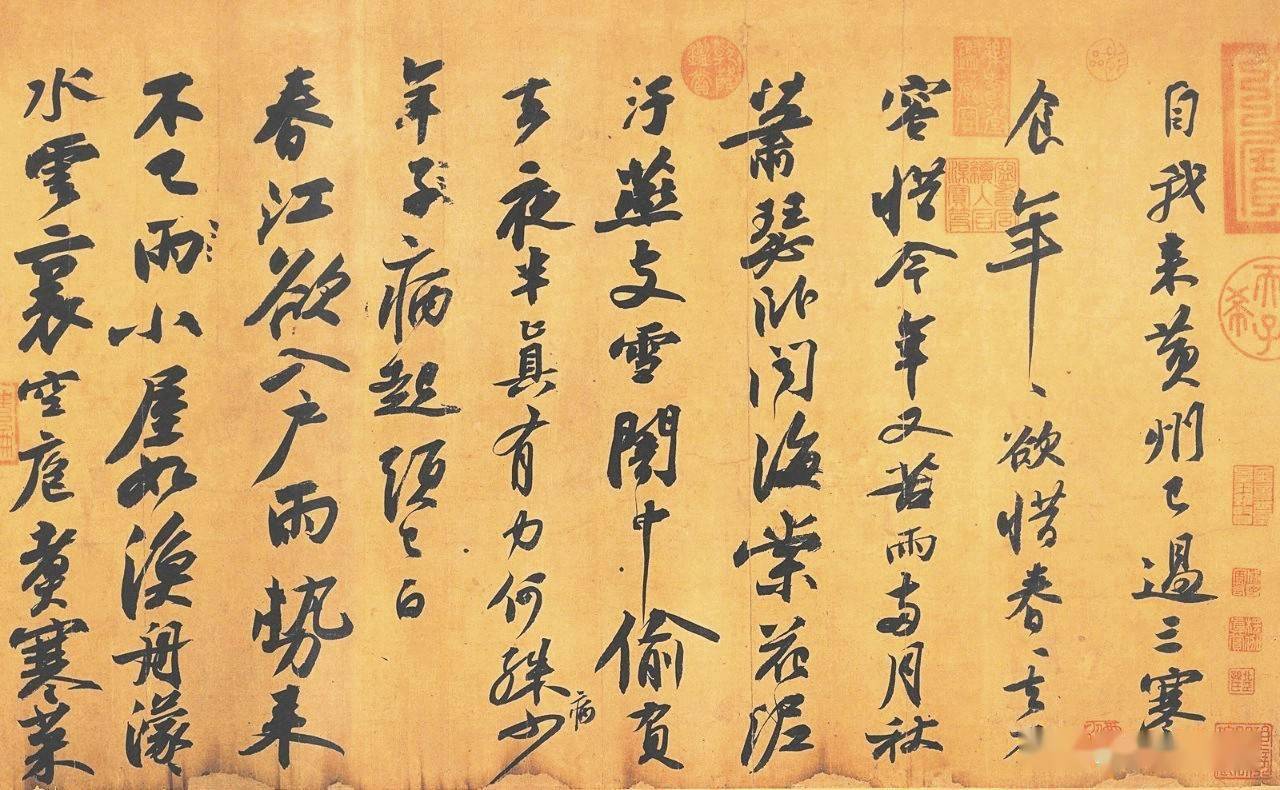 自我来黄州已過三寒
食年〻欲惜春〻去不
容惜今年又苦雨兩月秋
蕭瑟卧聞海棠花泥
汙燕支雪闇中偷負
去夜半真有力何殊少
病
年子病起頭已白
春江欲入户雨勢来
不已雨小屋如漁舟濛〻
水雲裏空庖煮寒菜
乾隆鑑賞
天子